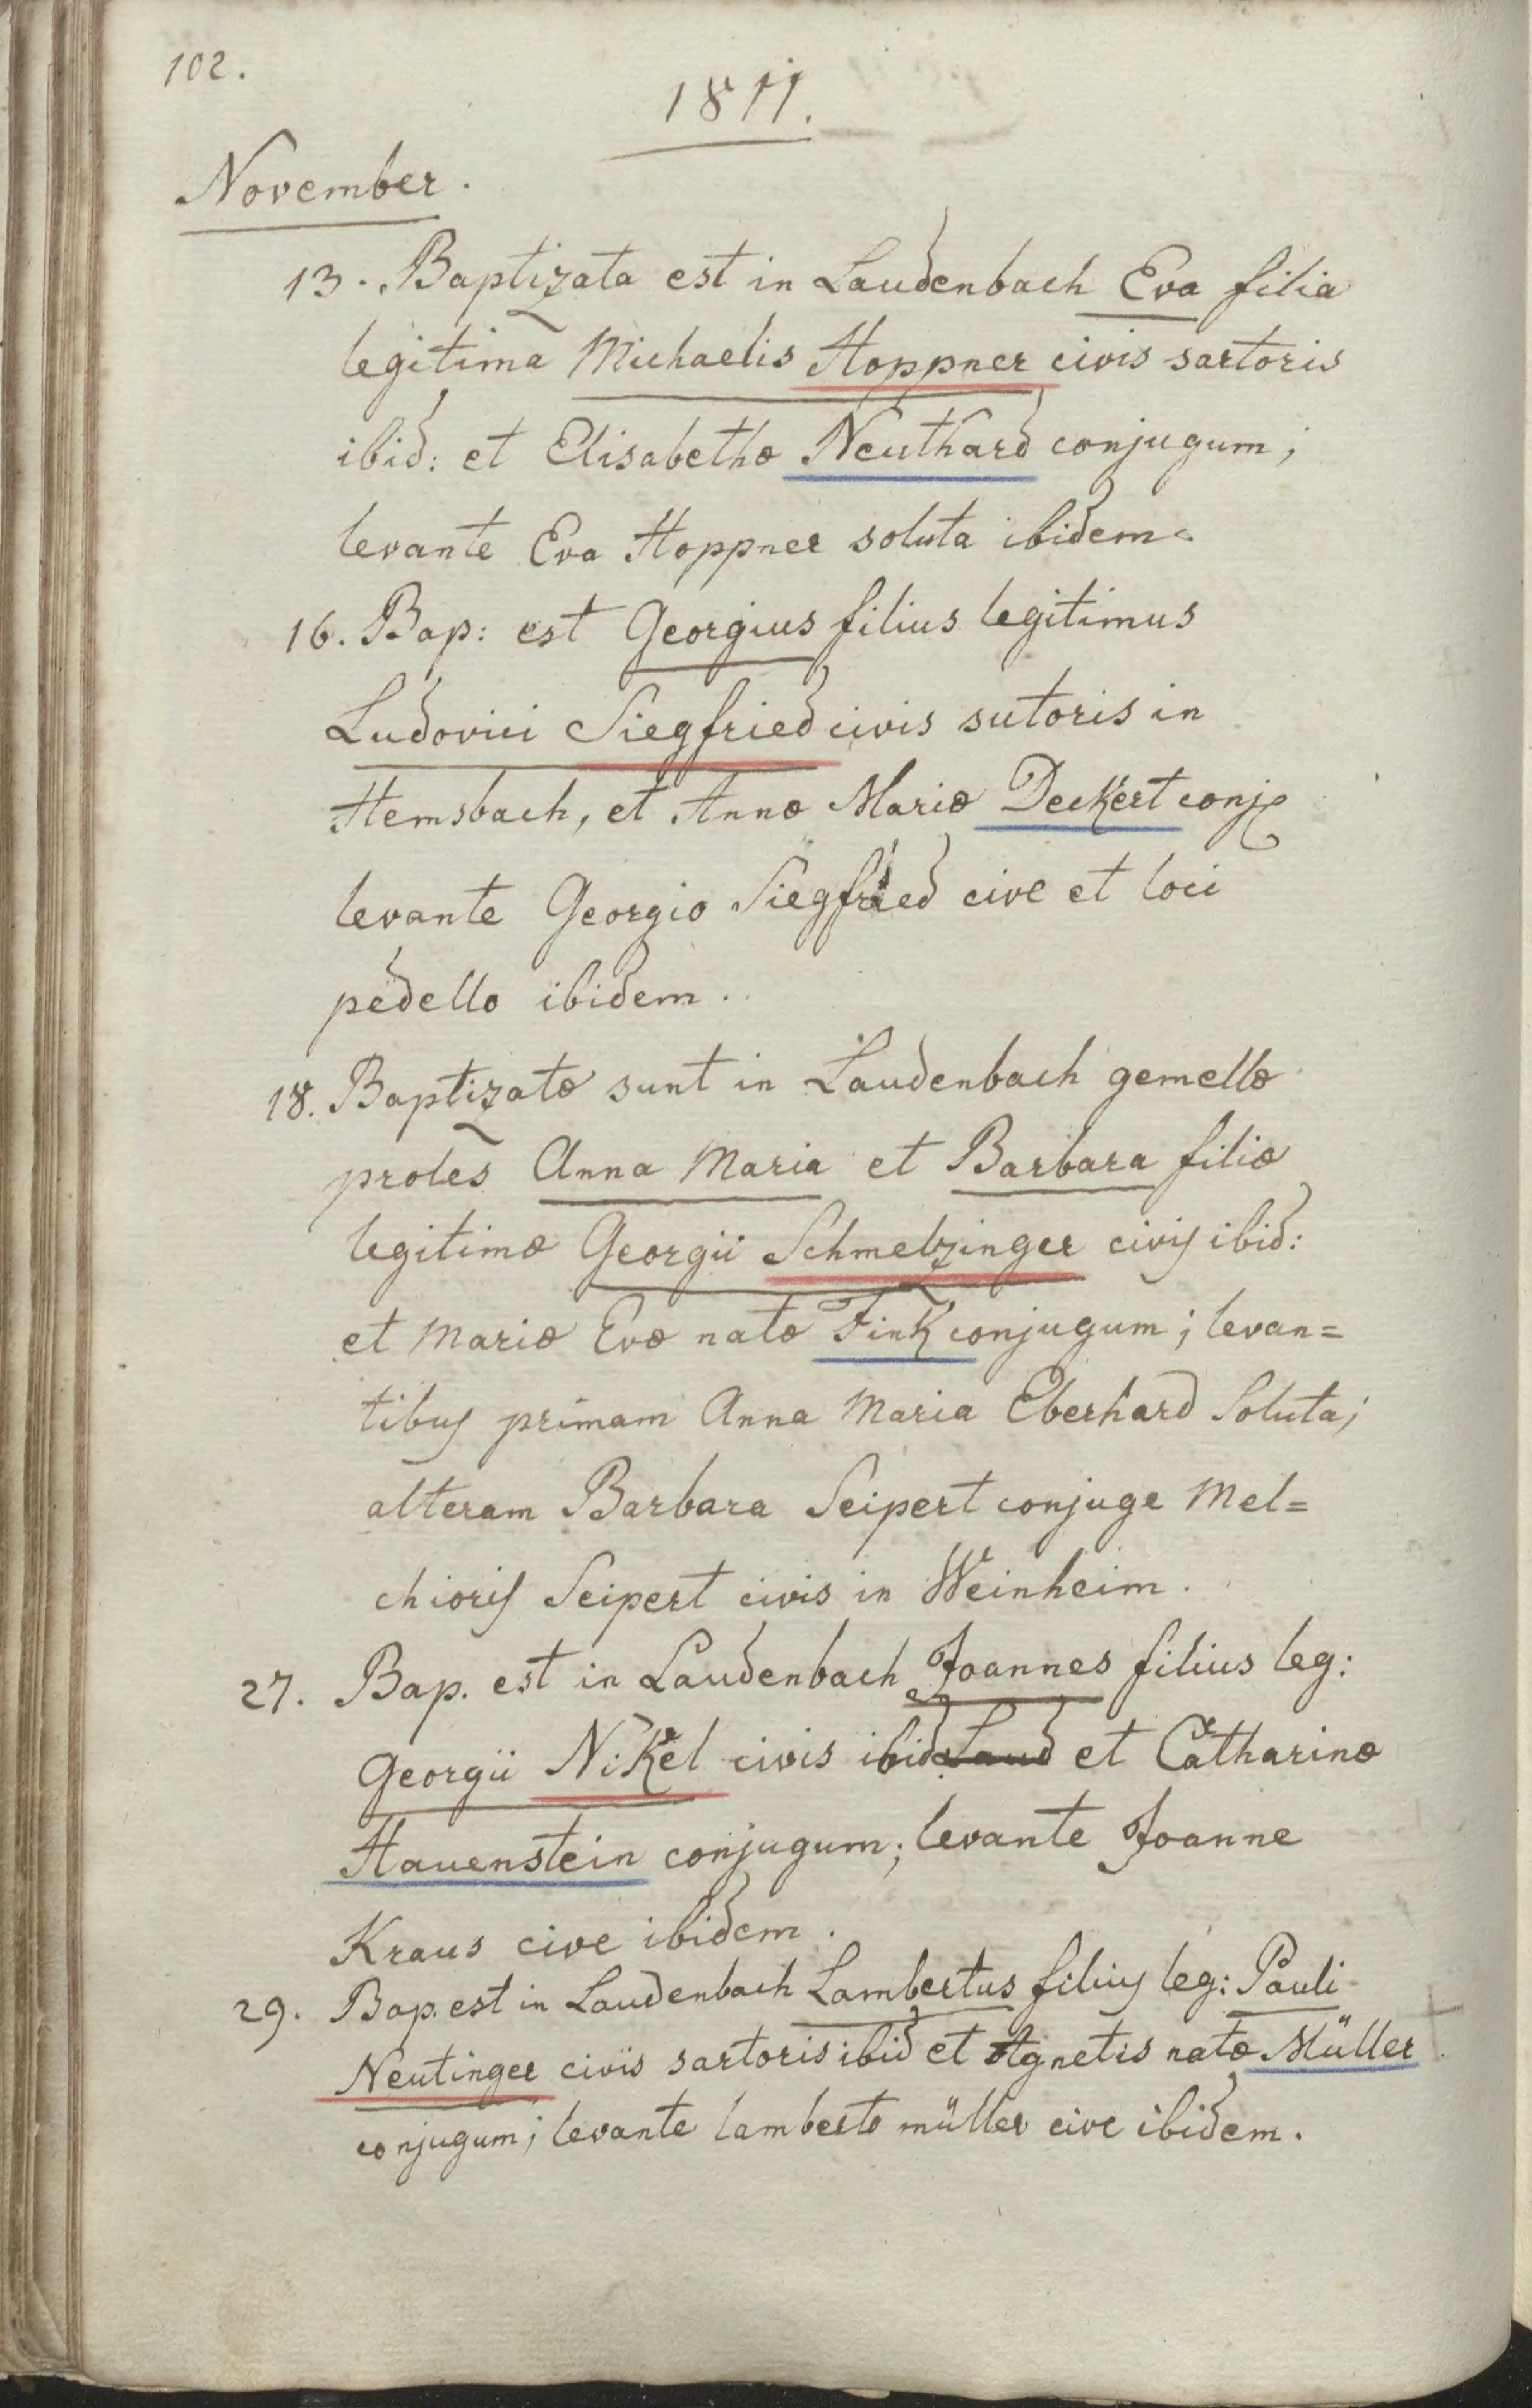 102.
1811.
November.
13. Baptizata est in Laudenbach Eva filia
legitima Michaelis Hoppner civis sartoris
ibid: et Elisabethæ Neuthard conjugum;
levante Eva Hoppner soluta ibidem.
16. Bap: est Georgius filius legitimus
Ludovici Siegfried civis sutoris in
Hemsbach, et Annæ Mariæ Deckert conj.
levante Georgio Siegfried cive et loci
pedello ibidem.
18. Baptizatæ sunt in Laudenbach gemellæ
proles Anna Maria et Barbara filiæ
legitimæ Georgii Schmelzinger civis ibid:
et Mariæ Evæ natæ Fink conjugum; levan=
tibus primam Anna Maria Eberhard Soluta;
alteram Barbara Seipert conjuge Mel=
chioris Seipert civis in Weinheim.
27. Bap. est in Laudenbach Joannes filius leg:
Georgii Nikel civis ibid Laud et Catharinæ
Hauenstein conjugum; levante Joanne
Kraus cive ibidem.
29. Bap. est in Laudenbach Lambertus filius leg: Pauli
Neutinger civis sartoris ibid et Agnetis natæ Müller
conjugum; levante lamberto müller cive ibidem.